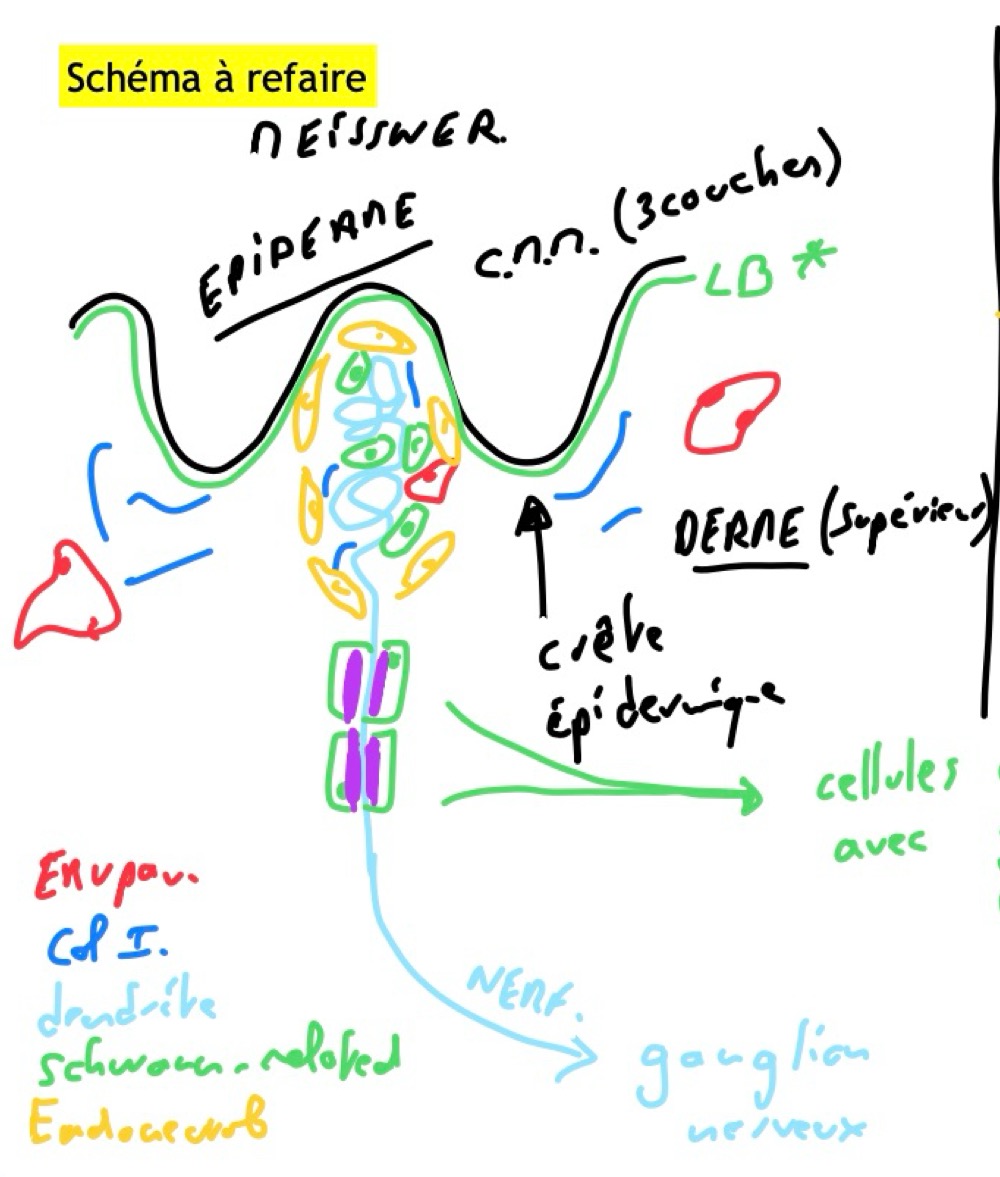 Schéma à refaire
MEISSNER.
EPIDERME
C.M.M. (3 couches)
LB *
DERME (supérieur)
crête
épidermique
cellules
avec
Col I.
NERF.
dendrite
ganglion
schwann-
nerveux